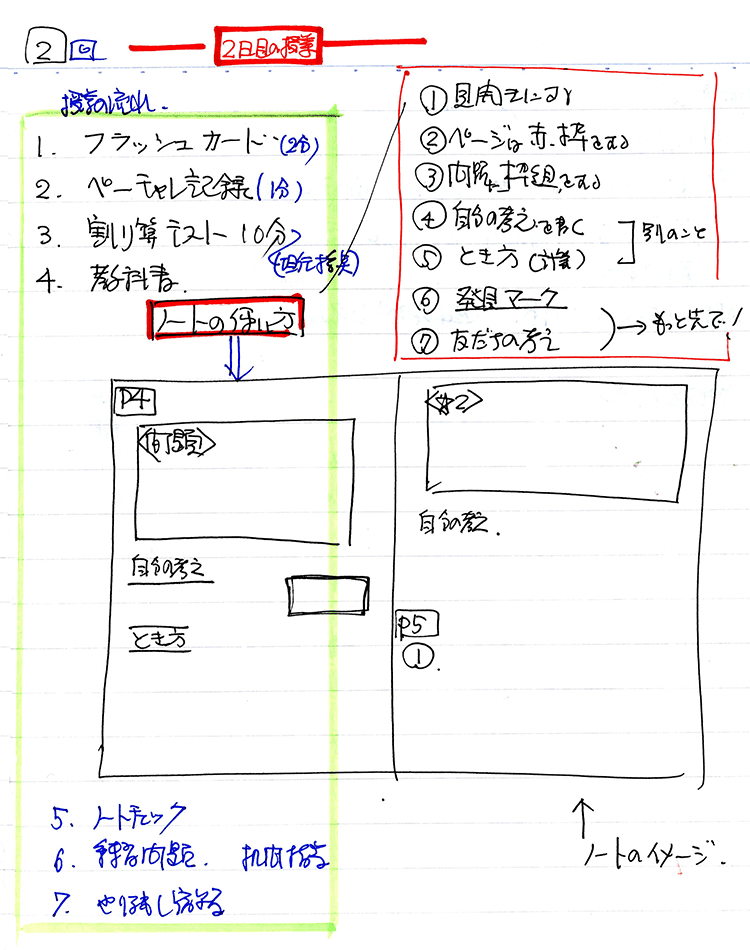 2 回
2日目の授業
授業の流れ.
1. フラッシュカード (2分)
2. ペーチャレ記録 (1分)
3. 割り算テスト 10分
4. 教科書.
ノートの使い方
① 見開きに
② ページは赤枠でかこむ
③ 問題は枠組でかこむ
④ 自分の考えを書く
⑤ とき方 (計算)
別のこと
⑥ 発見マーク
⑦ 友だちの考え
→ もっと先で!
P4
<問題>
自分の考え
とき方
<2>
自分の考え.
P5
①.
5. ノートチェック
6. 練習問題. 机間指導
7. やり残し
ノートのイメージ.